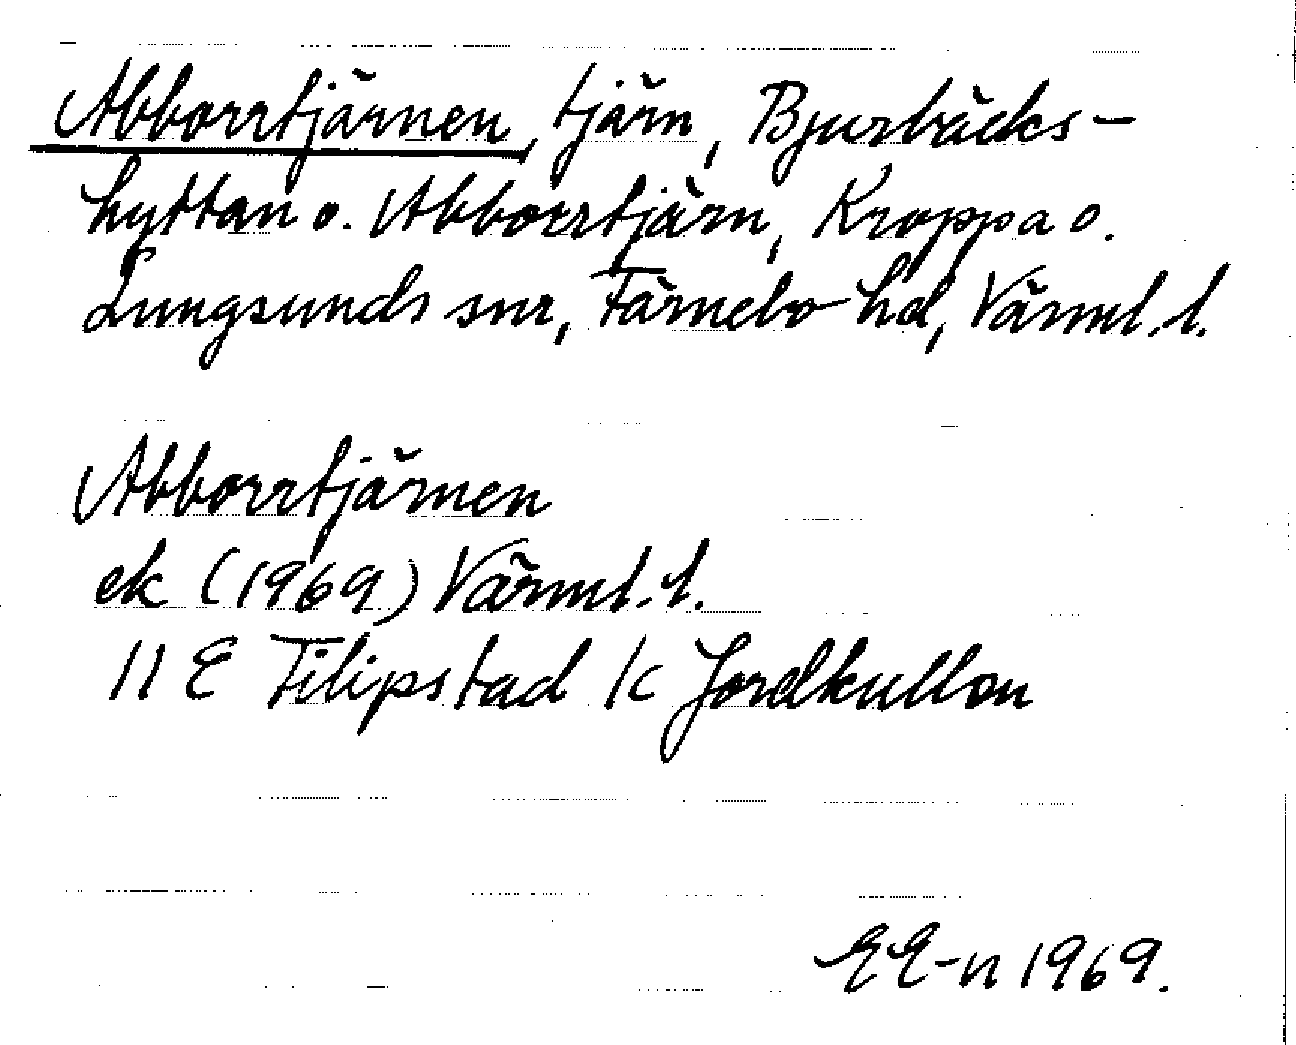 Abborrtjärnen, tjärn, Bjurbäcks-
hyttan o. Abborrtjärn, Kroppa o.
Lungsunds snr, Färnebo hd, Värml. l.
Abborrtjärnen
ek (1969) Värml. l.
11 E Filipstad 1c Jordkullen
EE-n 1969.